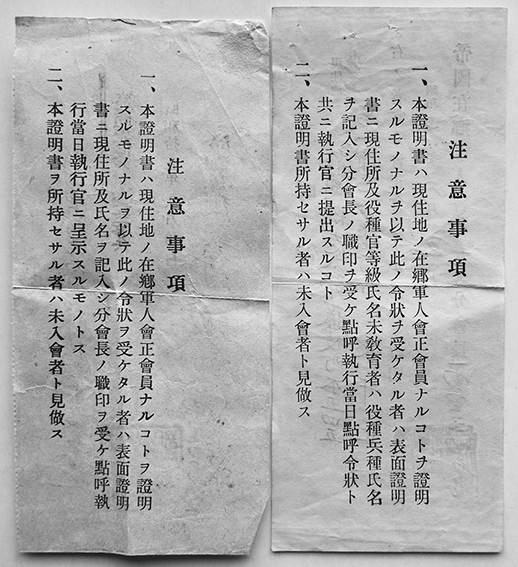 注意事項
一、本證明書ハ現住地ノ在鄕軍人會正會員ナルコトヲ證明
スルモノナルヲ以テ此ノ令狀ヲ受ケタル者ハ表面證明
書ニ現住所及役種官等級氏名未敎育者ハ役種兵種氏名
ヲ記入シ分會長ノ職印ヲ受ケ點呼執行當日點呼令狀ト
共ニ執行官ニ提出スルコト
二、本證明書所持セサル者ハ未入會者ト見做ス
注意事項
一、本證明書ハ現住地ノ在鄕軍人會正會員ナルコトヲ證明
スルモノナルヲ以テ此ノ令狀ヲ受ケタル者ハ表面證明
書ニ現住所及氏名ヲ記入シ分會長ノ職印ヲ受ケ點呼執
行當日執行官ニ呈示スルモノトス
二、本證明書ヲ所持セサル者ハ未入會者ト見做ス